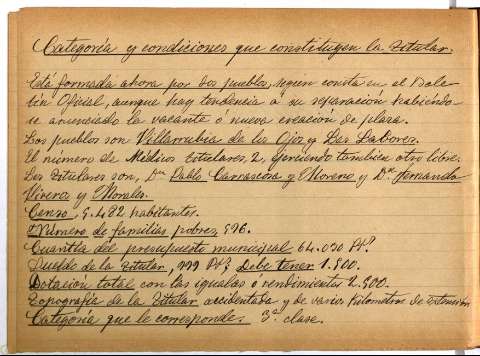 Categoría y condiciones que constituyen la titular.
Está formada ahora por dos pueblos, según consta en el Bole-
tín Oficial, aunque hay tendencia a su separación habiendo-
se anunciado la vacante o nueva creación de plaza.
Los pueblos son Villarrubia de los Ojos y Las Labores.
El número de Médicos titulares, 2, ejerciendo también otro libre.
Los titulares son, Dn Pablo Carrascosa y Moreno y Dn Fernando
Rivero y Morales.
Censo 5.482 habitantes.
Número de familias pobres, 596.
Cuantía del presupuesto municipal 64.030 Pts
Sueldo de la titular, 999 Pts Debe tener 1.500.
Dotación total con las igualas o rendimientos 2.500.
Topografía de la titular accidentada y de varios kilometros de extensión
Categoría que le corresponde. 3ª clase.